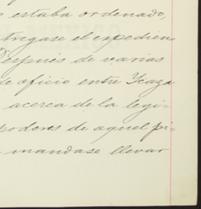 estaba ordenado,
tregase el expedien
Después de varias
de oficio entre Icaza
acerca de la legi-
poderes de aquel pi-
mandase llevar